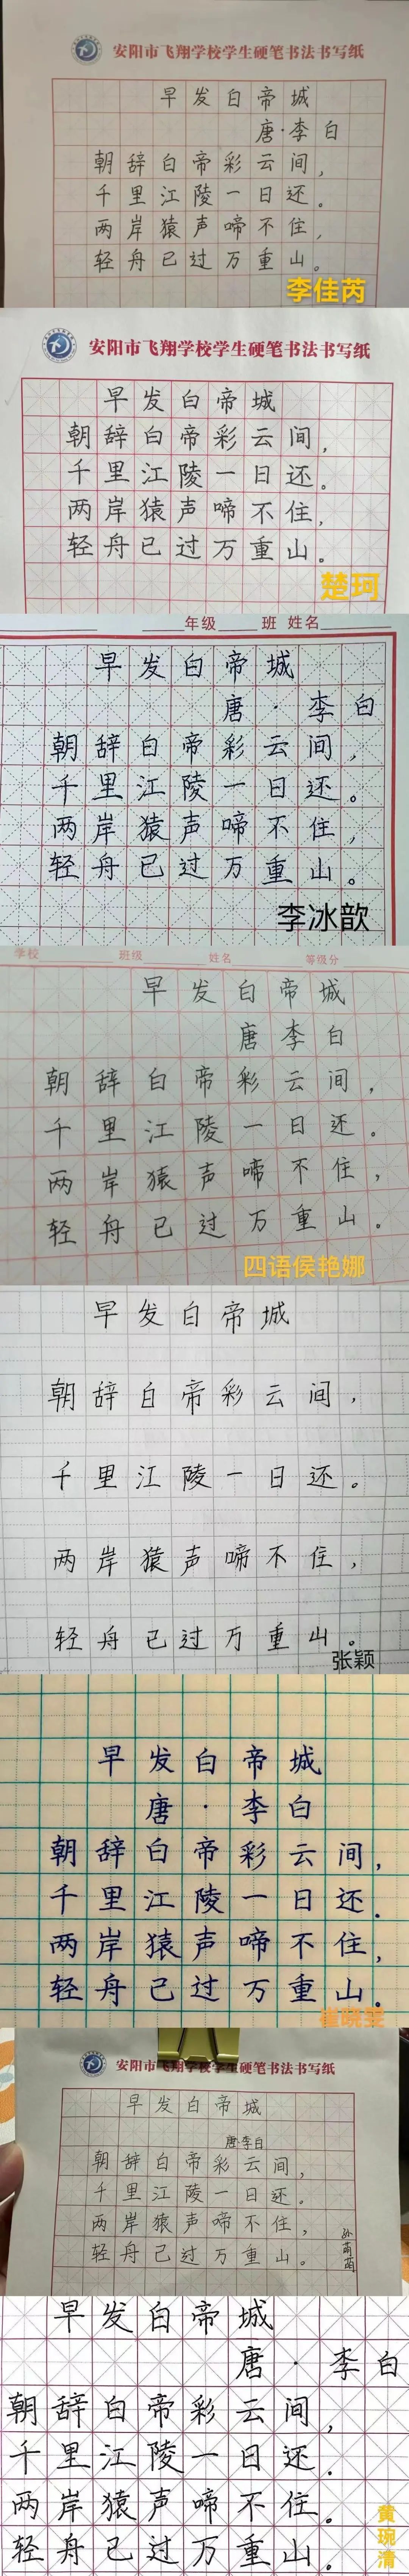 安阳市飞翔学校学生硬笔书法书写纸
早发白帝城
唐·李白
朝辞白帝彩云间，
千里江陵一日还。
两岸猿声啼不住，
轻舟已过万重山。
李佳芮
安阳市飞翔学校学生硬笔书法书写纸
早发白帝城
朝辞白帝彩云间，
千里江陵一日还。
两岸猿声啼不住，
轻舟已过万重山。
楚珂
年级 班 姓名
早发白帝城
唐·李白
朝辞白帝彩云间，
千里江陵一日还。
两岸猿声啼不住，
轻舟已过万重山。
李冰歆
学校 班级 姓名 等级分
早发白帝城
唐 李白
朝辞白帝彩云间，
千里江陵一日还。
两岸猿声啼不住，
轻舟已过万重山。
四语侯艳娜
早发白帝城
朝辞白帝彩云间，
千里江陵一日还。
两岸猿声啼不住，
轻舟已过万重山。
张颖
早发白帝城
唐·李白
朝辞白帝彩云间，
千里江陵一日还.
两岸猿声啼不住，
轻舟已过万重山.
崔晓雯
安阳市飞翔学校学生硬笔书法书写纸
早发白帝城
唐·李白
朝辞白帝彩云间，
千里江陵一日还。
两岸猿声啼不住，
轻舟已过万重山。
孙萌萌
早发白帝城
唐·李白
朝辞白帝彩云间，
千里江陵一日还.
两岸猿声啼不住。
轻舟已过万重山。
黄琬清